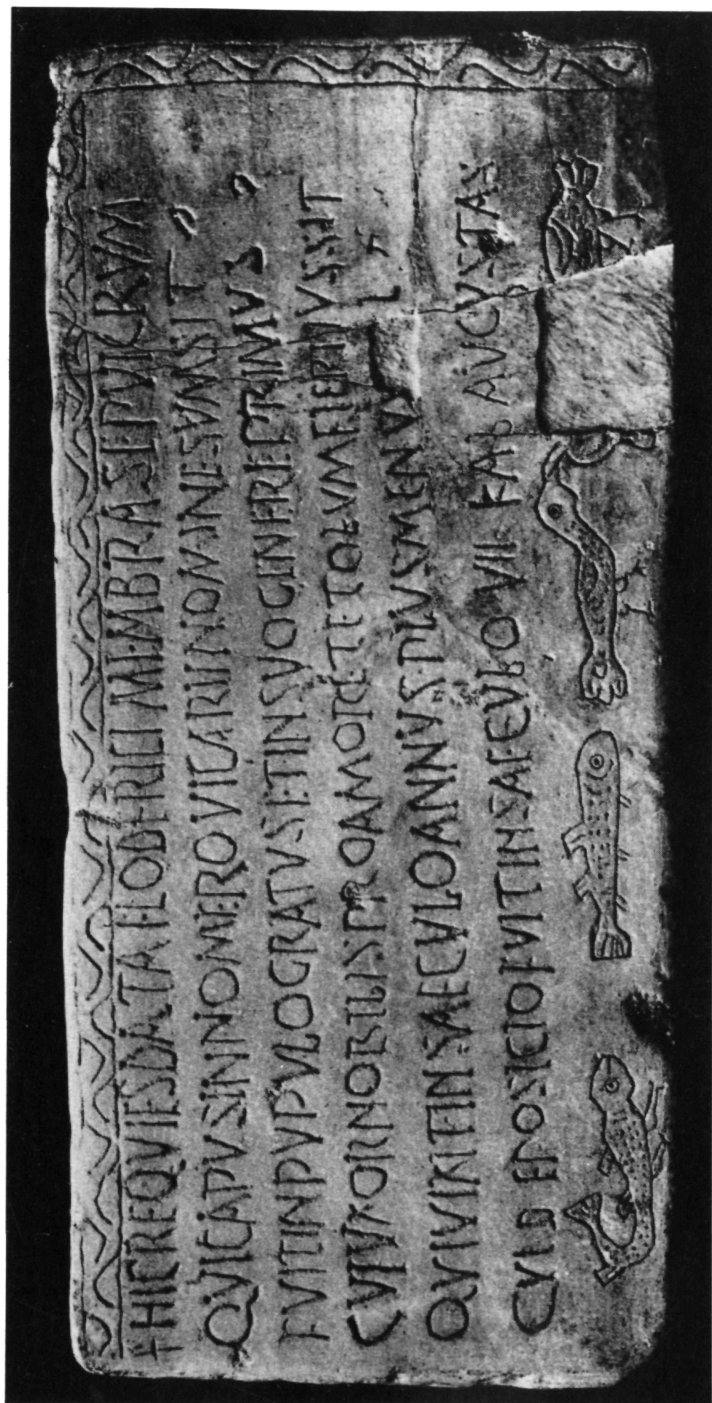 †HICREQVIESDATAHLODERICIMEMBRASEPVLCRVM
QVICAPVSINNOMEROVICARIINOMINESVMSIT
FVITINPVPVLOGRATVSETINSVOGENEREPRIMVS
CVIVXORNOBILISPROAMORETETOLVMFIERIIVSSIT
QVIVIXITINSAECVLOANNVSPLVSMENVS
CVIDEPOSICIOFVITINSAECVLO VII KAL AVGVSTAS